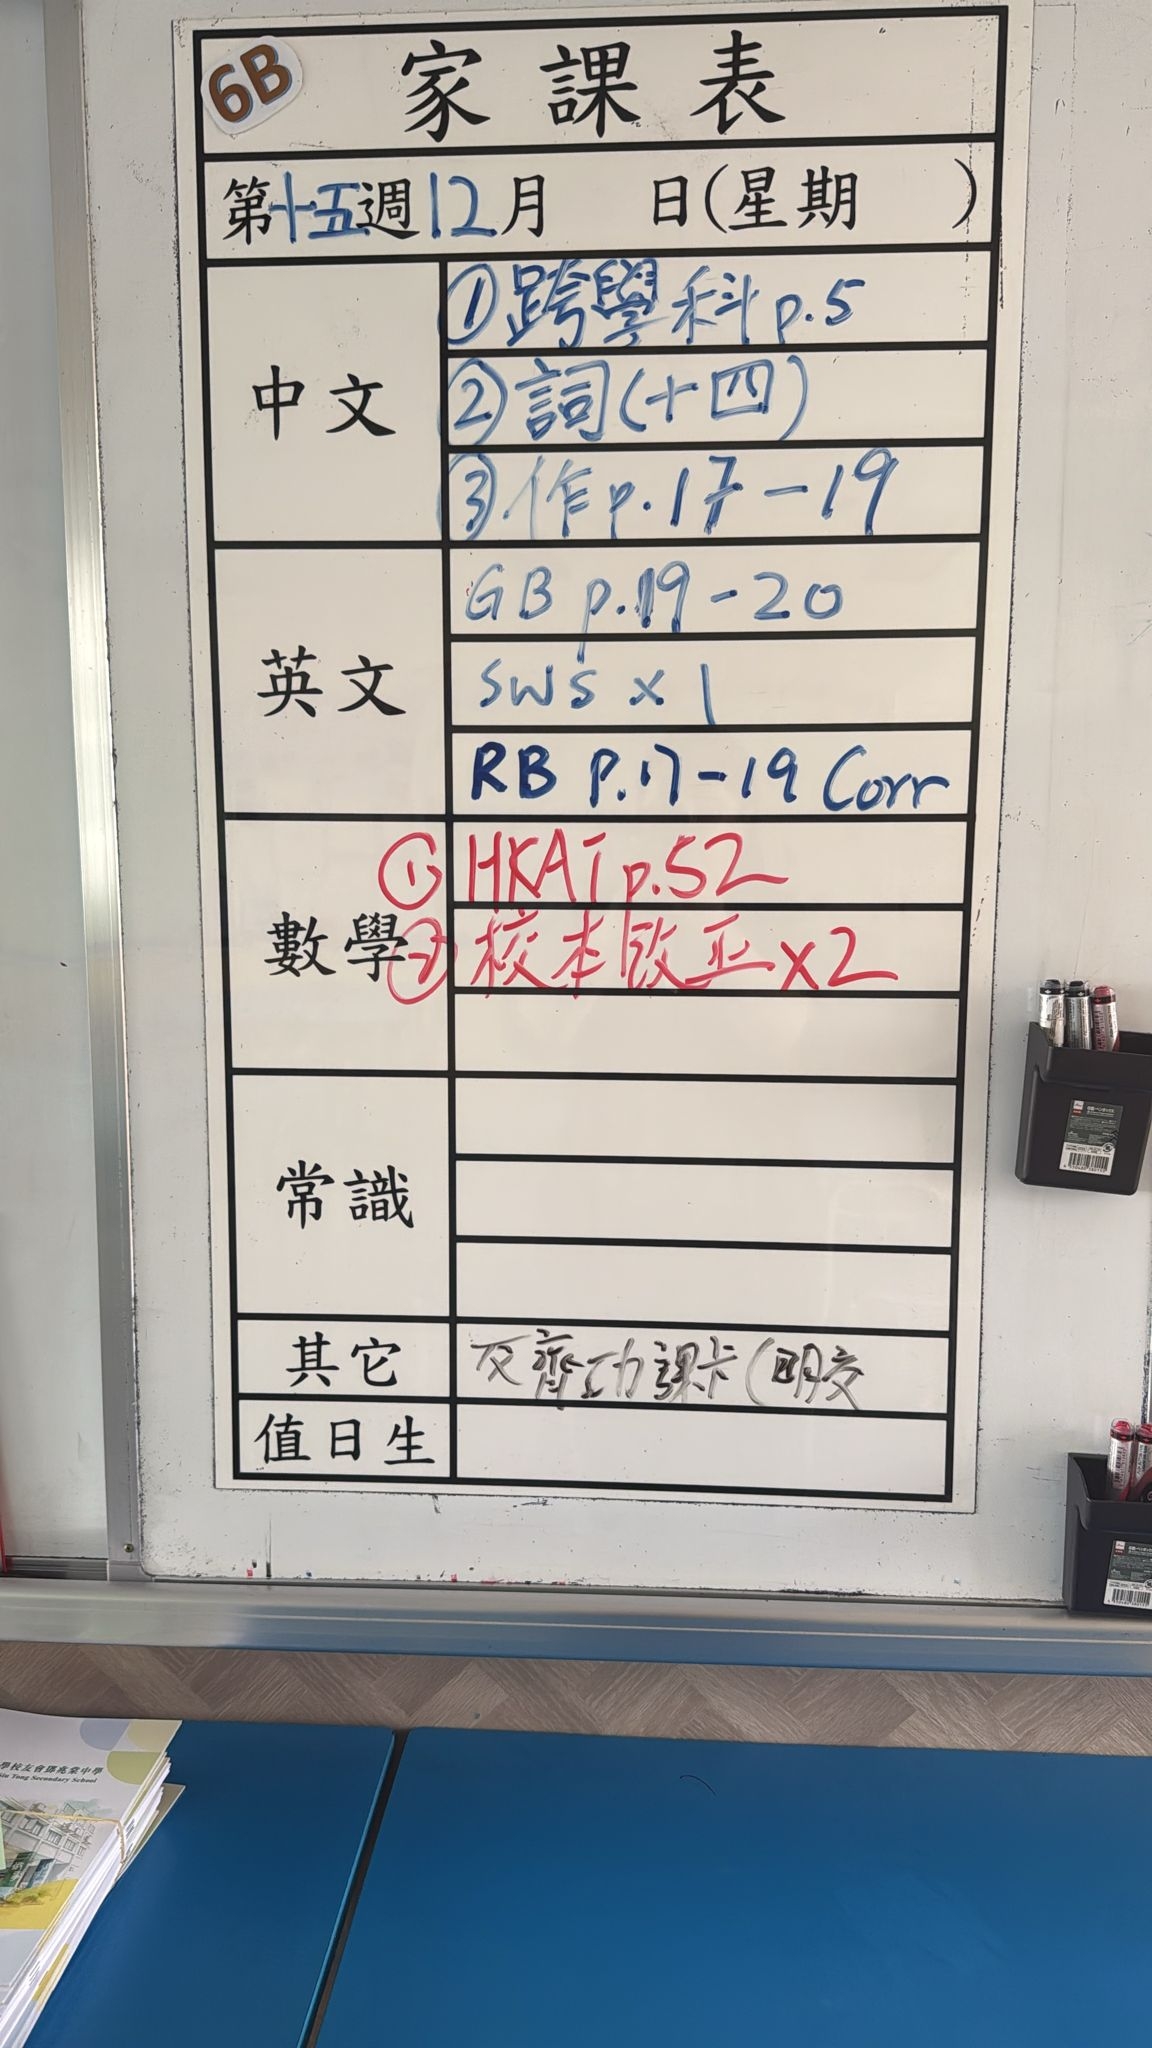 6B
家課表
第十五週12月 日(星期 )
中文
①跨學科p.5
②詞(十四)
③作p.17-19
英文
GB p.19-20
SWS x 1
RB P.17-19 Corr
數學
① HKAT p.52
② 校本改正x2
常識
其它
欠齊功課卡(明交
值日生
學校友會鄧兆棠中學
Siu Tong Secondary School